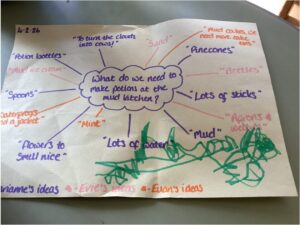 6.2.26
"To turn the clouds
into cows!"
"Sand"
"Mud cakes, we
need more cake
"Potion bottles"
"Pinecones"
What do we need to
make potions at the
mud kitchen?
"Spoons"
"Lots of sticks"
and a jacket"
"Mint"
"Flowers to
smell nice"
"Lots of water"
"Mud"
"Acorns &
Evie's ideas
- Evan's ideas